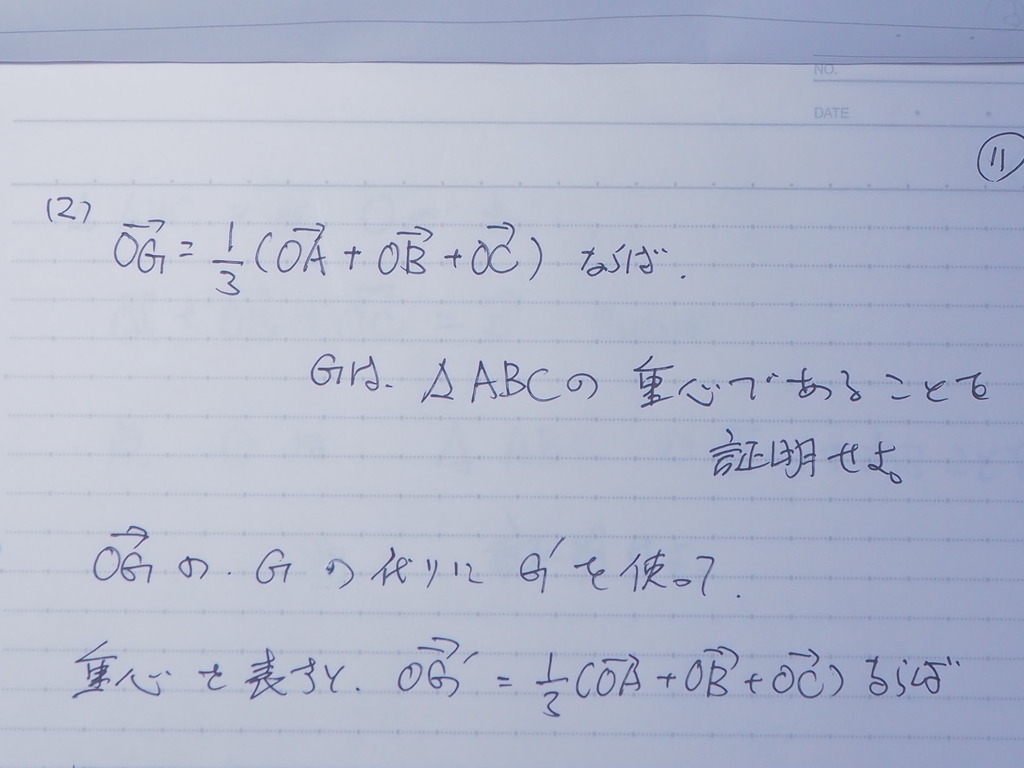 NO.
DATE
⑪
(2)
$\overrightarrow{OG} = \frac{1}{3}(\overrightarrow{OA} + \overrightarrow{OB} + \overrightarrow{OC})$ ならば.
Gは、△ABCの重心であることを
証明せよ。
$\overrightarrow{OG}$ の、Gの代りに G′を使って.
重心を表すと、$\overrightarrow{OG'} = \frac{1}{3}(\overrightarrow{OA} + \overrightarrow{OB} + \overrightarrow{OC})$ ならば